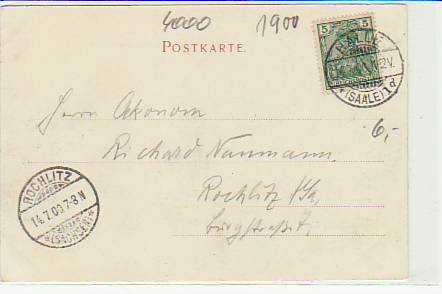 4000 1900
POSTKARTE.
5 5
HALLE
12V.
*(SAALE)1d
6,-
Herrn Ökonom
Richard Naumann.
Rochlitz i/Sa,
Burgstraße
ROCHLITZ
14.7.00.7-8N
*(SACHSEN)*